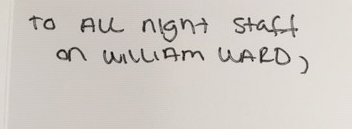 TO ALL night staff
on WILLIAM WARD,